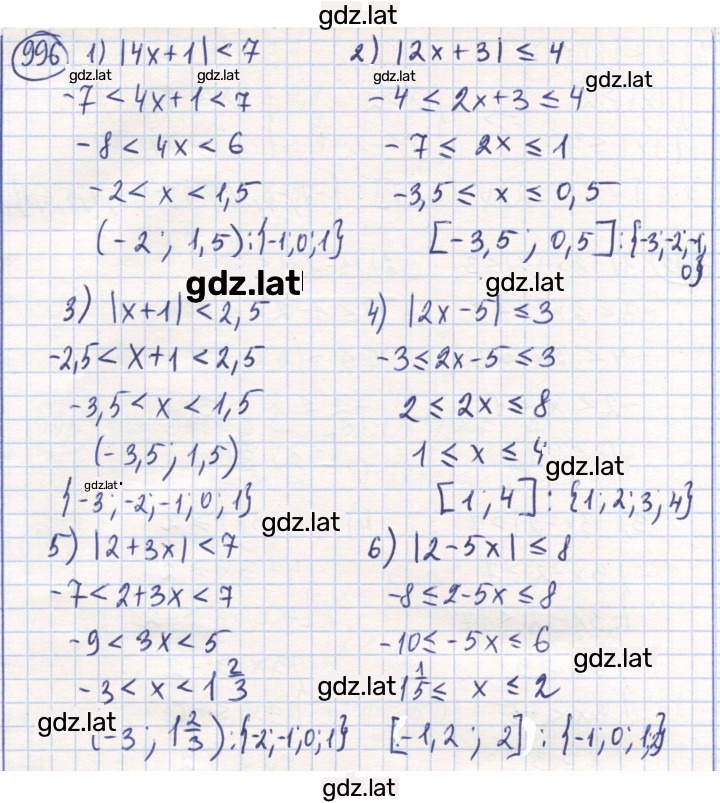 gdz.lat
996 1) |4x+1| < 7
gdz.lat gdz.lat
-7 < 4x+1 < 7
-8 < 4x < 6
-2 < x < 1,5
(-2; 1,5): {-1; 0; 1}
2) |2x+3| ≤ 4
gdz.lat gdz.lat
-4 ≤ 2x+3 ≤ 4
-7 ≤ 2x ≤ 1
-3,5 ≤ x ≤ 0,5
[-3,5; 0,5]: {-3; -2; -1;
0}
gdz.lat
3) |x+1| < 2,5
-2,5 < x+1 < 2,5
-3,5 < x < 1,5
(-3,5; 1,5)
gdz.lat
{-3; -2; -1; 0; 1}
gdz.lat
4) |2x-5| ≤ 3
gdz.lat
-3 ≤ 2x-5 ≤ 3
2 ≤ 2x ≤ 8
1 ≤ x ≤ 4
gdz.lat
[1; 4]: {1; 2; 3; 4}
gdz.lat
5) |2+3x| < 7
-7 < 2+3x < 7
-9 < 3x < 5
-3 < x < 1 2/3
gdz.lat
(-3; 1 2/3): {-2; -1; 0; 1}
6) |2-5x| ≤ 8
-8 ≤ 2-5x ≤ 8
-10 ≤ -5x ≤ 6
gdz.lat
gdz.lat 1 1/5 ≤ x ≤ 2
[-1,2; 2]: {-1; 0; 1; 2}
gdz.lat
gdz.lat